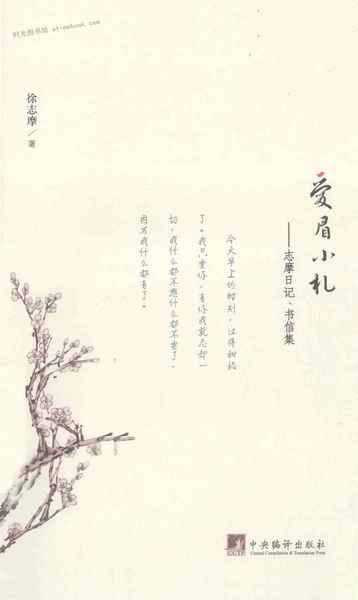 时光图书馆 etimebook.com
徐志摩／著
爱眉小札
——志摩日记、书信集
今天早上的时刻，过得甜极
了。我只要你，有你我就忘却一
切，我什么都不想什么都不要了，
因为我什么都有了。
中央编译出版社
Central Compilation & Translation Press